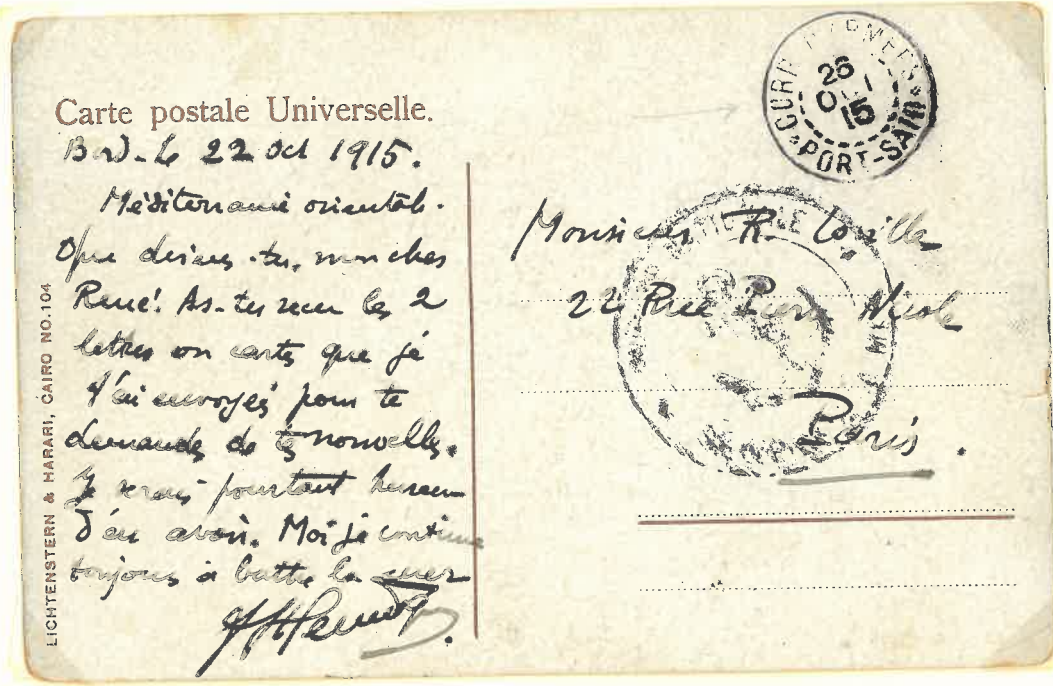 Carte postale Universelle.
Bord. le 22 Oct 1915.
Méditerranée orientale.
Que deviens-tu, mon cher
René! As-tu reçu les 2
lettres ou cartes que je
t'ai envoyées pour te
demander de tes nouvelles.
Je serais pourtant heureux
d'en avoir. Moi je continue
toujours à battre la mer
LICHTENSTERN & HARARI, CAIRO NO. 104
26
15
PORT-SAID
Monsieur R.
22 Rue Pierre Nicole
Paris.